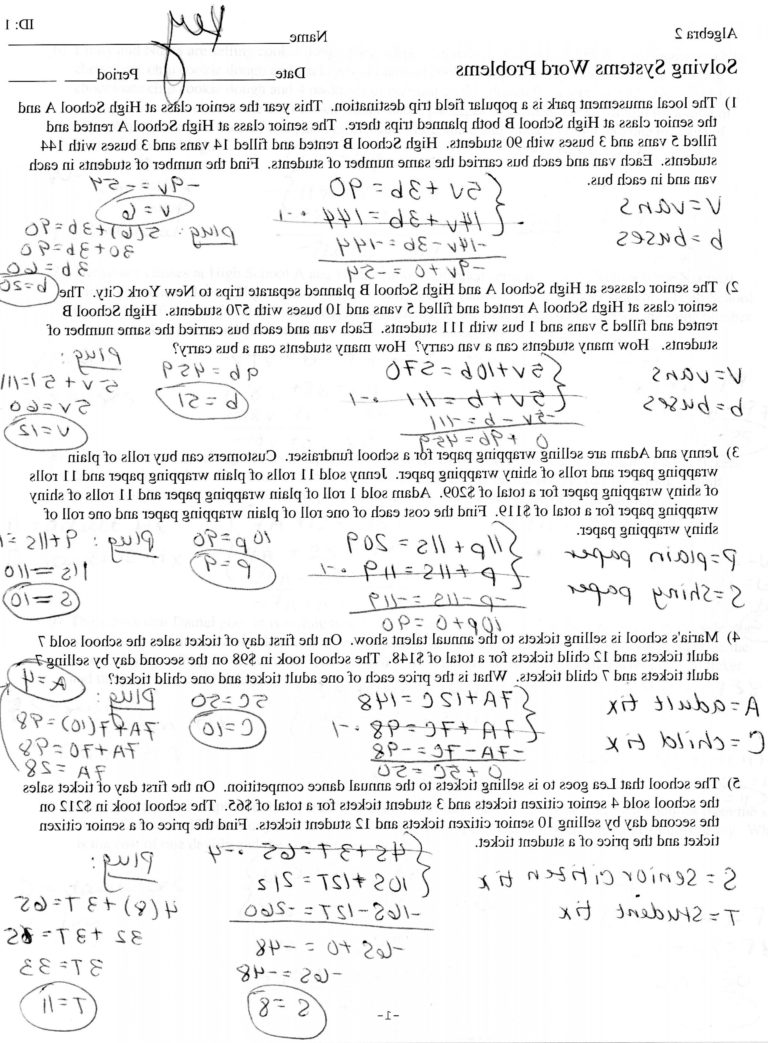 Algebra 2 Name Key ID: 1
Solving Systems Word Problems Date Period
1) The local amusement park is a popular field trip destination. This year the senior class at High School A and
the senior class at High School B both planned trips there. The senior class at High School A rented and
filled 5 vans and 3 buses with 90 students. High School B rented and filled 14 vans and 3 buses with 144
students. Each van and each bus carried the same number of students. Find the number of students in each
van and in each bus.
V=vans
b=buses
5v+3b=90
14v+3b=144 ·-1
-14v-3b=-144
-9v+0=-54
-9v=-54
v=6
plug: 5(6)+3b=90
30+3b=90
3b=60
b=20
2) The senior classes at High School A and High School B planned separate trips to New York City. The
senior class at High School A rented and filled 5 vans and 10 buses with 570 students. High School B
rented and filled 5 vans and 1 bus with 111 students. Each van and each bus carried the same number of
students. How many students can a van carry? How many students can a bus carry?
V=vans
b=buses
5v+10b=570
5v+b=111 ·-1
-5v-b=-111
0+9b=459
9b=459
b=51
plug:
5v+51=111
5v=60
v=12
3) Jenny and Adam are selling wrapping paper for a school fundraiser. Customers can buy rolls of plain
wrapping paper and rolls of shiny wrapping paper. Jenny sold 11 rolls of plain wrapping paper and 11 rolls
of shiny wrapping paper for a total of $209. Adam sold 1 roll of plain wrapping paper and 11 rolls of shiny
wrapping paper for a total of $119. Find the cost each of one roll of plain wrapping paper and one roll of
shiny wrapping paper.
P=plain paper
S=Shiny paper
11p+11s=209
p+11s=119 ·-1
-p-11s=-119
10p+0=90
10p=90
p=9
plug: 9+11s=1
11s=110
S=10
4) Maria's school is selling tickets to the annual talent show. On the first day of ticket sales the school sold 7
adult tickets and 12 child tickets for a total of $148. The school took in $98 on the second day by selling 7
adult tickets and 7 child tickets. What is the price each of one adult ticket and one child ticket?
A=adult tix
C=child tix
7A+12C=148
7A+7C=98 ·-1
-7A-7C=-98
0+5C=50
5C=50
C=10
plug:
7A+7(10)=98
7A+70=98
7A=28
A=4
5) The school that Lea goes to is selling tickets to the annual dance competition. On the first day of ticket sales
the school sold 4 senior citizen tickets and 3 student tickets for a total of $65. The school took in $212 on
the second day by selling 10 senior citizen tickets and 12 student tickets. Find the price of a senior citizen
ticket and the price of a student ticket.
S=Senior citizen tix
T=Student tix
4S+3T=65 ·-4
10S+12T=212
-16S-12T=-260
-6S+0=-48
-6S=-48
S=8
plug:
4(8)+3T=65
32+3T=65
3T=33
T=11
-1-